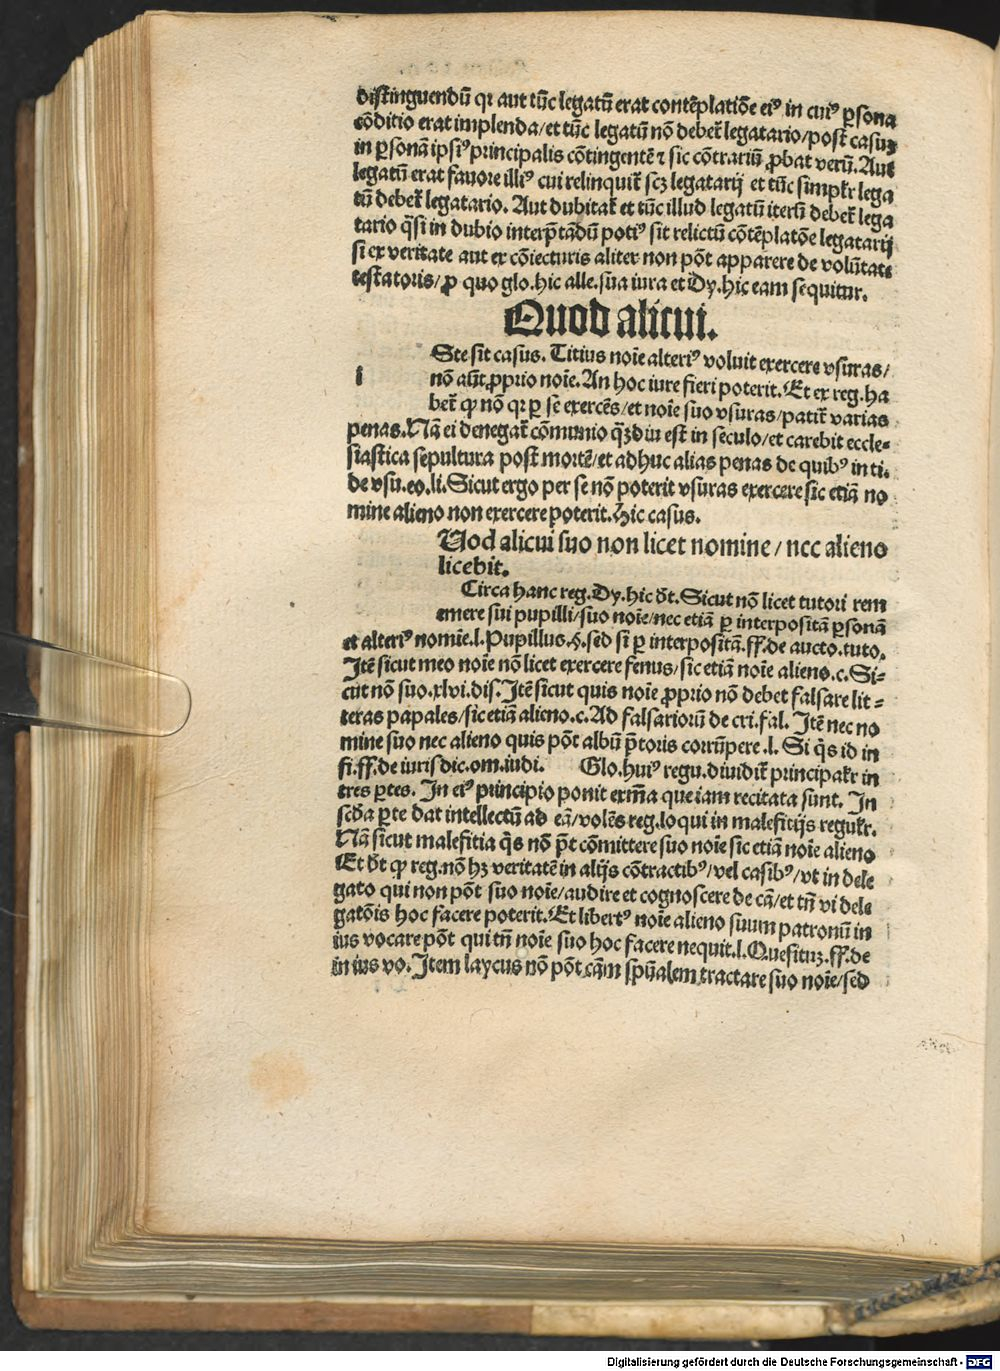 distinguendū qꝛ aut tūc legatū erat contēplatiōe eiꝰ in cuiꝰ ꝑsona
cōditio erat implenda/et tūc legatū nō debet̄ legatario/post casum
in ꝑsonā ipsiꝰ principalis cōtingentē ⁊ sic cōtrariū ꝓbat verū. Aut
legatū erat fauore illiꝰ cui relinquit̄ scꝫ legatarij et tūc simpłr lega
tū debet̄ legatario. Aut dubitat̄ et tūc illud legatū iterū debet̄ lega
tario q̄si in dubio interp̄tādū potiꝰ sit relictū cōtēplatōe legatarij
si ex veritate aut ex cōiecturis aliter non pōt apparere de volūtate
testatoris/ꝓ quo glo.hic alle.sūa iura et Dy.hic eam sequitur.
Quod alicui.
i Ste sit casus. Titius noīe alteriꝰ voluit exercere vsuras/
nō aūt ꝓprio noīe. An hoc iure fieri poterit. Et ex reg.ha
bet̄ ꝙ nō qꝛ ꝑ se exercēs/et noīe suo vsuras/patit̄ varias
penas. Nā ei denegat̄ cōmunio q̄ꝫdiu est in seculo/et carebit eccle-
siastica sepultura post mortē/et adhuc alias penas de quibꝰ in ti.
de vsu.eo.li. Sicut ergo per se nō poterit vsuras exercere sic etiā no
mine alieno non exercere poterit. Hic casus.
Uod alicui suo non licet nomine / nec alieno
licebit.
Circa hanc reg. Dy.hic dt̄. Sicut nō licet tutori rem
emere sui pupilli/suo noīe/nec etiā ꝑ interpositā ꝑsonā
et alteriꝰ nomīe.l. Pupillus.§.sed si ꝑ interpositā.ff.de aucto.tuto.
Itē sicut meo noīe nō licet exercere fenus/sic etiā noīe alieno.c. Si-
cut nō suo.xlvi.dis. Itē sicut quis noīe ꝓprio nō debet falsare lit-
teras papales/sic etiā alieno.c. Ad falsariorū de cri.fal. Itē nec no
mine suo nec alieno quis pōt albū p̄toris corrūpere .l. Si q̄s id in
fi.ff.de iurisdic.om.iudi. Glo.huiꝰ regu.diuidit̄ principałr in
tres ꝑtes. In eiꝰ principio ponit exm̄a que iam recitata sunt. In
scd̄a ꝑte dat intellectū ad eā/volēs reg.loqui in malefitijs regułr.
Nā sicut malefitia q̄s nō p̄t cōmittere suo noīe sic etiā noīe alieno
Et dt̄ ꝙ reg.nō hꝫ veritatē in alijs cōtractibꝰ/vel casibꝰ/vt in dele
gato qui non pōt suo noīe/audire et cognoscere de cā/et tn̄ vi dele
gatōis hoc facere poterit. Et libertꝰ noīe alieno suum patronū in
ius vocare pōt qui tn̄ noīe suo hoc facere nequit.l. Quesituꝫ.ff.de
in ius vo. Item laycus nō pōt cām sp̄ualem tractare suo noīe/sed
Digitalisierung gefördert durch die Deutsche Forschungsgemeinschaft - DFG